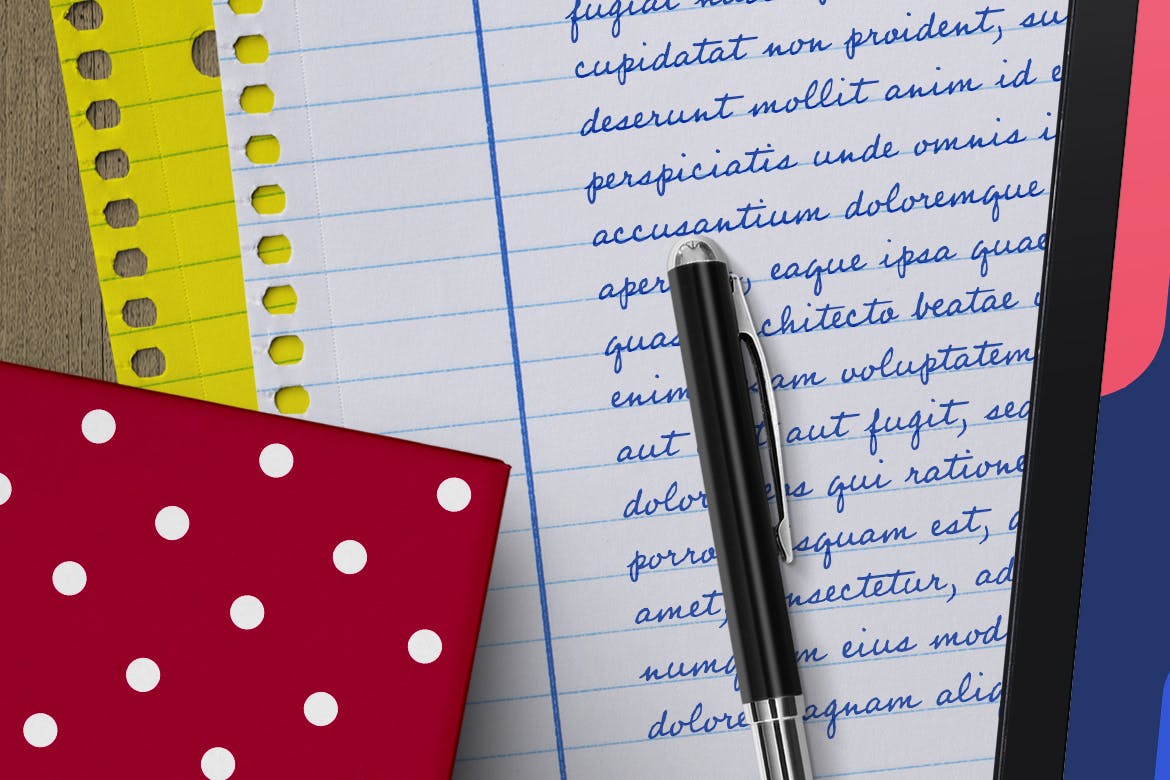 fugiat
cupidatat non proident, su
deserunt mollit anim id e
perspiciatis unde omnis i
accusantium doloremque
aper eaque ipsa quae
quas chitecto beatae
enim am voluptatem
aut aut fugit, sed
dolor eos qui ratione
porro squam est,
amet, nsectetur, ad
numq m eius mod
dolore agnam aliq